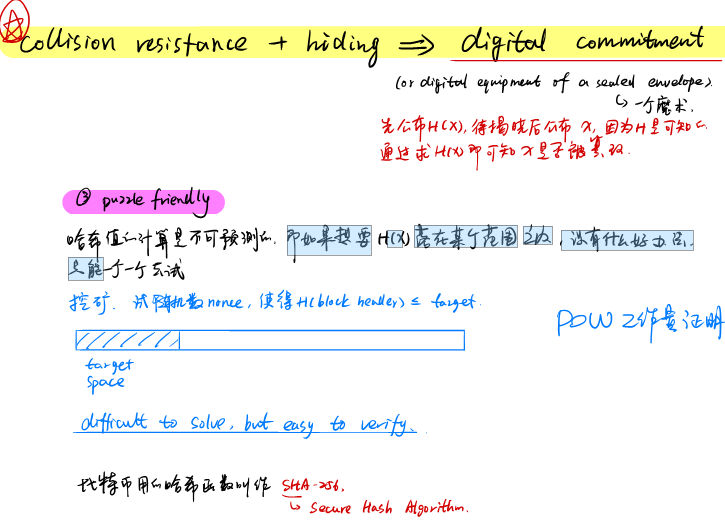 collision resistance + hiding ⇒ digital commitment
(or digital equipment of a sealed envelope).
↳ 一个魔术.
先公布H(X), 待揭晓后公布 X, 因为H是可知的
通过求 H(X) 即可知 X 是否被篡改.
③ puzzle friendly
哈希值的计算是不可预测的. 即如果想要 H(X) 落在某个范围之内, 没有什么好办法.
只能一个一个去试
挖矿. 试随机数nonce, 使得H(block header) ≤ target.
POW 工作量证明
target
space
difficult to solve, but easy to verify.
比特币用的哈希函数叫作 SHA-256.
↳ Secure Hash Algorithm.